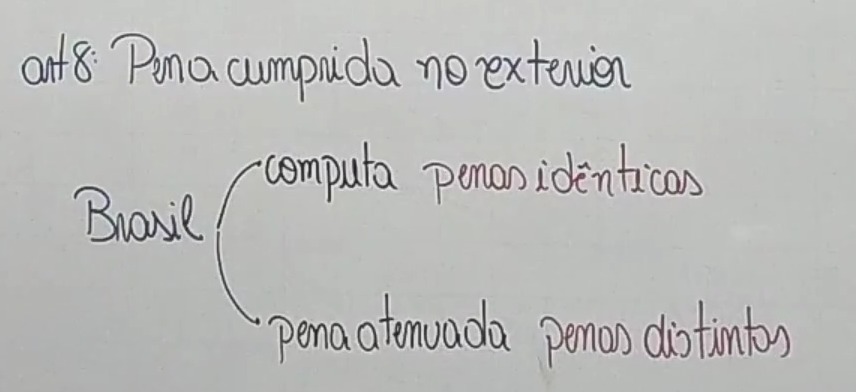 art 8: Pena cumprida no exterior
computa penas idênticas
Brasil
pena atenuada penas distintas